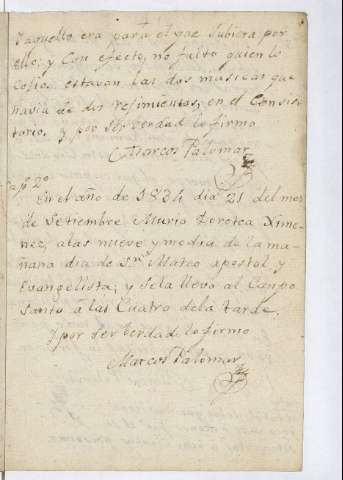 Yaquello era para el que subiera por
ello; y Con efecto, no faltó quien lo
Cojio. estavan las dos musicas que
havia de dos resimientos, en el Consis-
torio, y por ser verdad lo firmo
Marcos Palomar
ap.e 2.o
En el año de 1834 dia 21 del mes
de Setiembre Murio Dorotea Xime-
nez, alas nueve y media de la ma-
ñana dia de S.n Mateo apostol y
Evangelista; y Sela llevó al Canpo
Santo á las Cuatro dela tarde,
Y por ser berdad lo firmo
Marcos Palomar